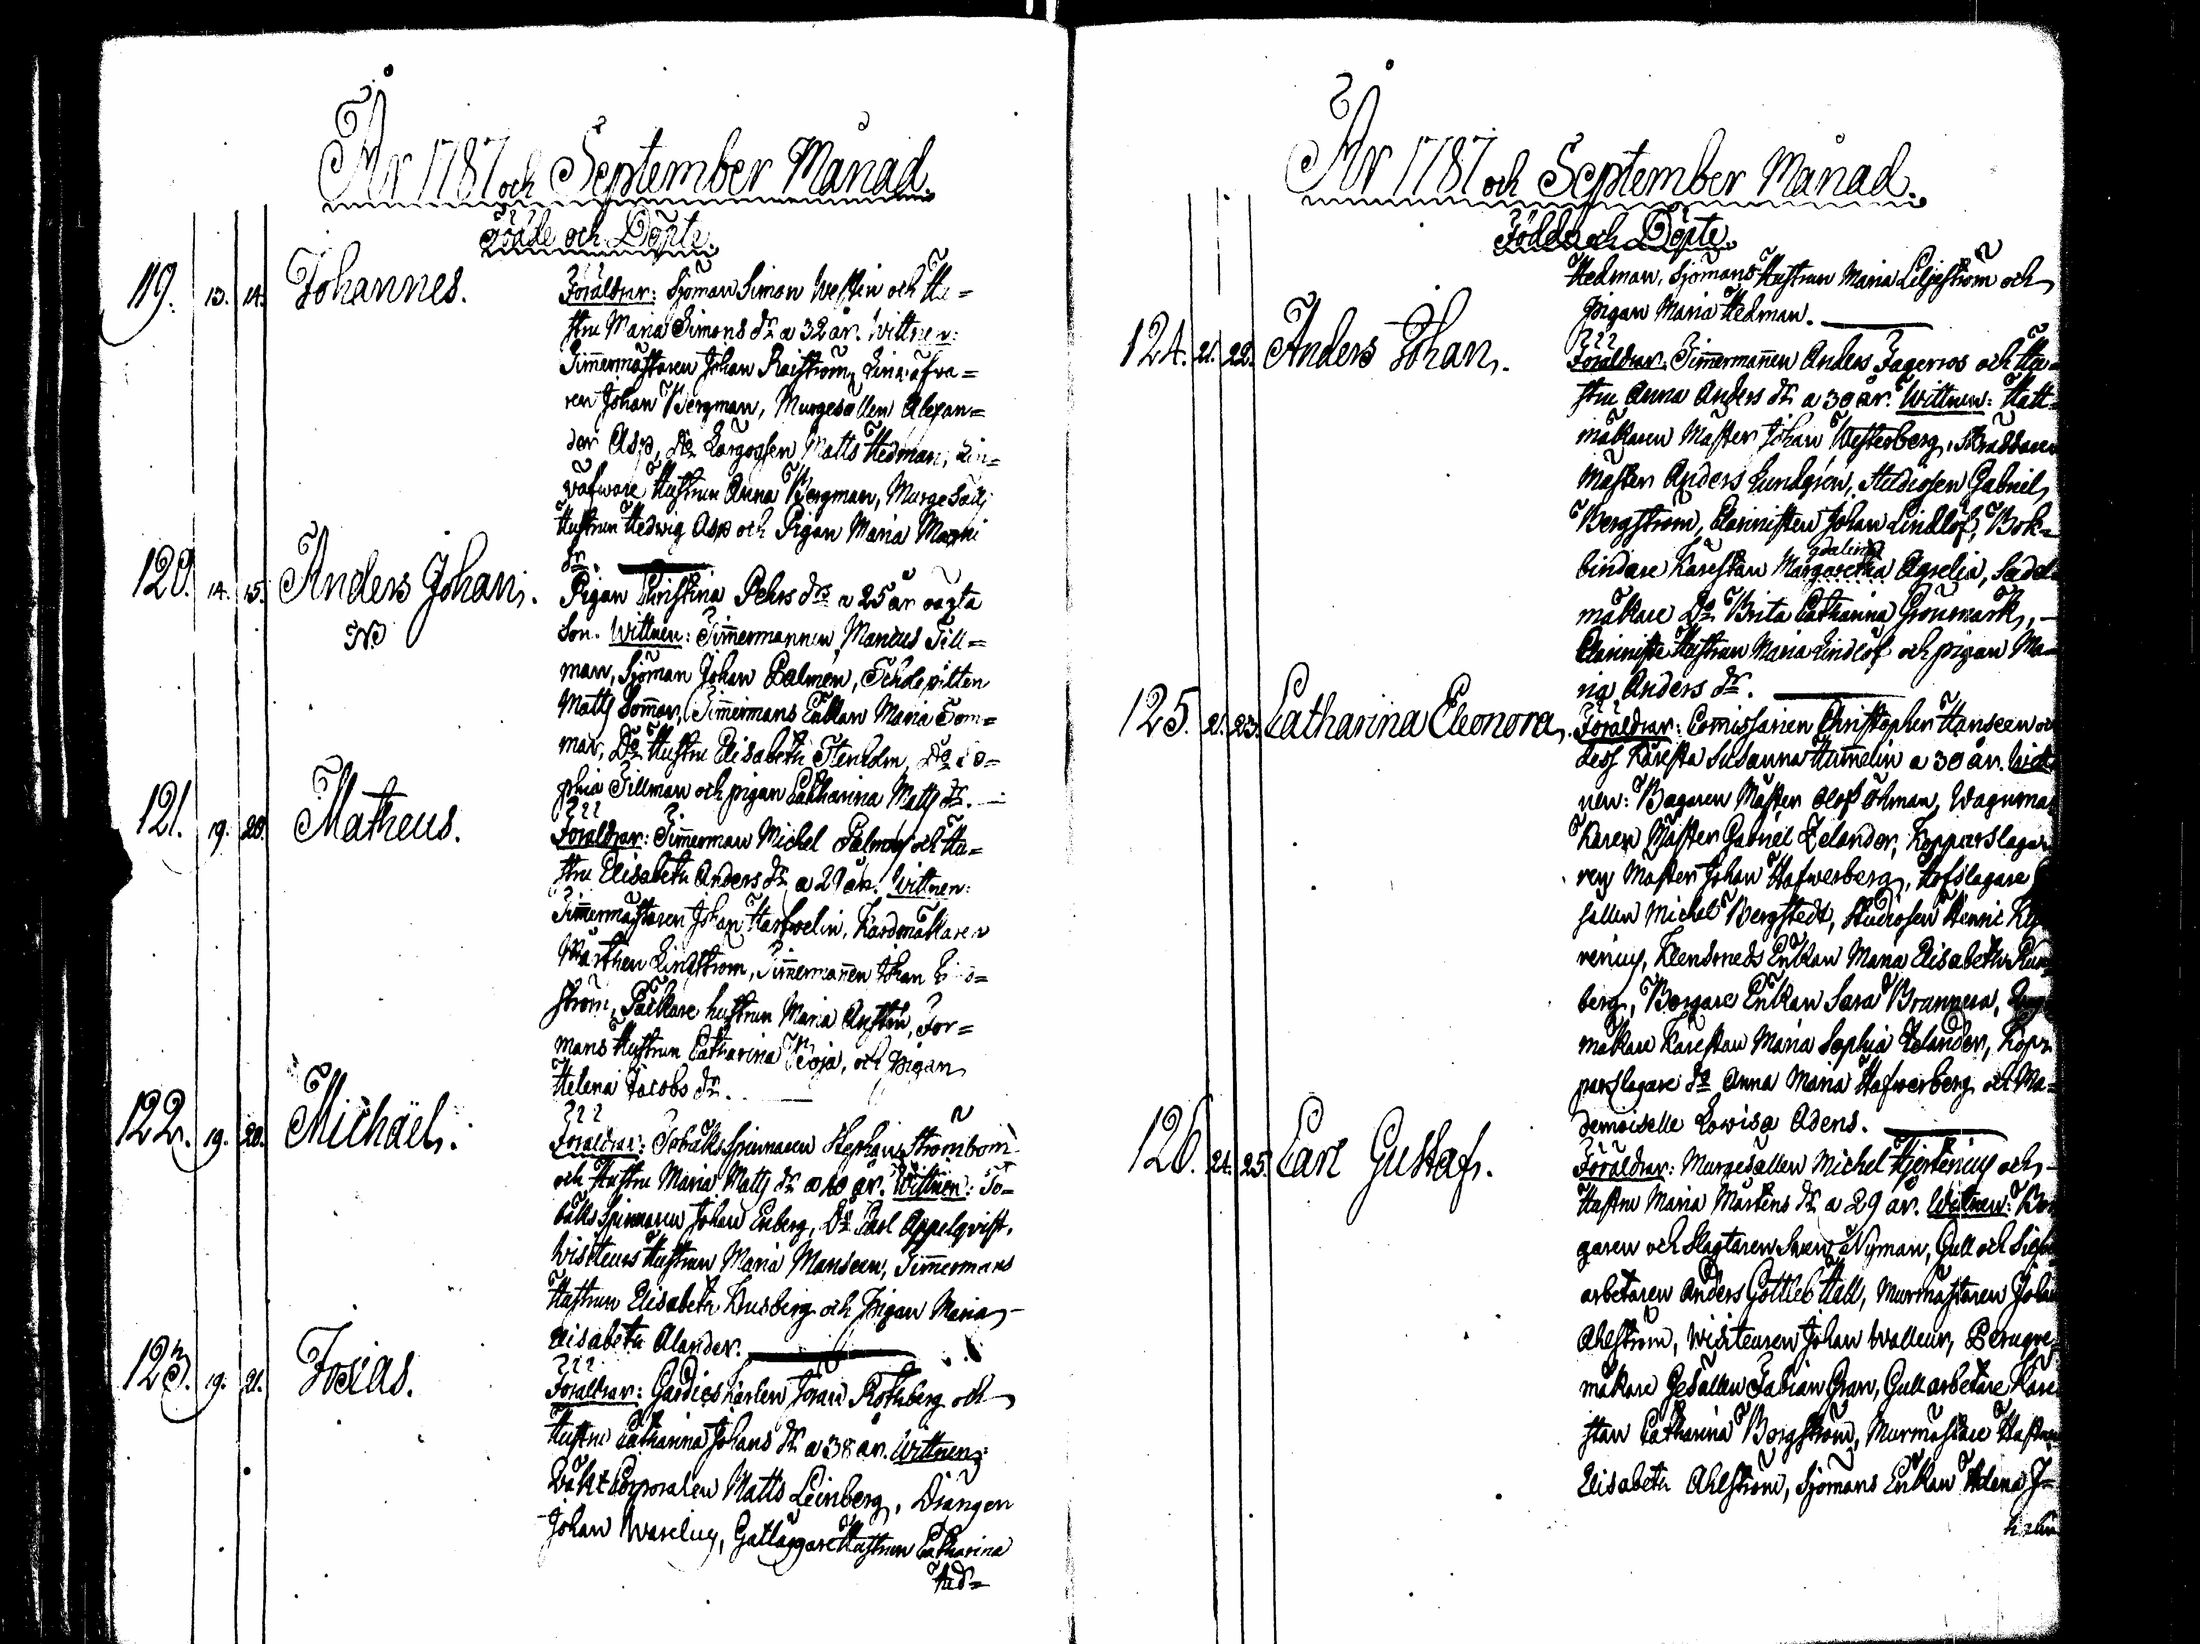 År 1787 och September Månad.
Födde och Döpte.
119. 13. 14. Johannes.
Föräldrar: Sjöman Simon Westin och Hu=
stru Maria Simons dr a 32 år. Wittnen:
Timmermästaren Johan Raiström, Linwäfwa=
ren Johan Bergman, Murgesällen Alexan=
der Asp, do Largossen Matts Hedman, Lin=
wäfware Hustrun Anna Bergman, Murgesäll
Hustrun Hedwig Asp och Pigan Maria Matts
dr.
120. 14. 15. Anders Johan.
Pigan Christina Pehrs dr a 25 år oägta
Son. Wittnen: Timmermannen Manius Till=
man, Sjöman Johan Palmén, Schölepilten
Matts Sommar, Timmermans Enkan Maria Som=
mar, Do Hustru Elisabeth Stenholm, Do So=
phia Tillman och pigan Catharina Matts dr.
121. 19. 20. Matheus.
Föräldrar: Timmerman Michel Palmroos och Hu=
stru Elisabeth Anders dr a 29 år. Wittnen:
Timmermästaren Johan Hartwelin, Kardmakaren
Mårthen Lindström, Timmermannen Johan Lind=
ström, Packare hustrun Maria Aystén, For=
mans Hustrun Catharina Roja, och pigan
Helena Jacobs dr.
122. 19. 20. Michaël.
Föräldrar: Tobaksspinnaren Stephan Strömbom
och Hustru Maria Matts dr a 40 år. Wittnen: To=
baksspinnaren Johan Enberg, Do Carl Appelqvist,
Visiteurs Hustrun Maria Manseen, Timmermans
Hustrun Elisabeth Krusberg och Pigan Maria
Elisabeth Alander.
123. 19. 21. Josias.
Föräldrar: Gardieskarlen Johan Rothberg och
Hustru Catharina Johans dr a 38 år. Wittnen:
Wakt Corporalen Matts Leinberg, Drängen
Johan Waselius, Gatläggare Hustrun Catharina
Hed=
År 1787 och September Månad.
Födde och Döpte.
Hedman, Sjömans Hustrun Maria Liljeström och
Pigan Maria Hedman.
124. 21. 22. Anders Johan.
Föräldrar: Timmermannen Anders Fagerroos och Hu=
stru Anna Anders dr a 30 år. Wittnen: Hatt=
makaren Mäster Johan Westerberg, Skräddaren
Mäster Anders Lundgrén, Studiosen Gabriel
Bergström, Clarinisten Johan Lindlöf, Bok=
bindare Kärestan Magdalena Agrelia, Sadel=
makare Do Brita Catharina Grönmark,
Clarinist Hustrun Maria Lindlöf och pigan Ma=
ria Anders dr.
125. 21. 23. Catharina Eleonora.
Föräldrar: Comissarien Christopher Hanseen och
dess Käresta Susanna Hummelin a 30 år. Witt=
nen: Bagaren Mäster Olof Öhman, Wagnma=
karen Mäster Gabriel Zelander, Kopparslaga=
ren Mäster Johan Hafwerberg, Hofslagare
sällen Michel Bergstedt, Studiosen Henric
renius, Klensmeds Enkan Maria Elisabeth
berg, Borgare Enkan Sara Brunnera,
makare Kärestan Maria Sophia Zelander, Kop=
parslagare do Anna Maria Hafwerberg och Ma=
demoiselle Lowisa Adens.
126. 24. 25. Carl Gustaf.
Föräldrar: Murgesällen Michel Hjertenius och
Hustru Maria Mårtens dr a 29 år. Wittnen: Bor
garen och Slagtaren Sven Nyman, Gull och Silfwer
arbetaren Anders Gottlieb Häll, Murmästaren Johan
Ahlström, Visiteuren Johan Walleur, Peruque=
makare Gesällen Fabian Gran, Gull arbetare Käre
stan Catharina Borgström, Murmästare Hustrun
Elisabeth Ahlström, Sjömans Enkan Helena J=